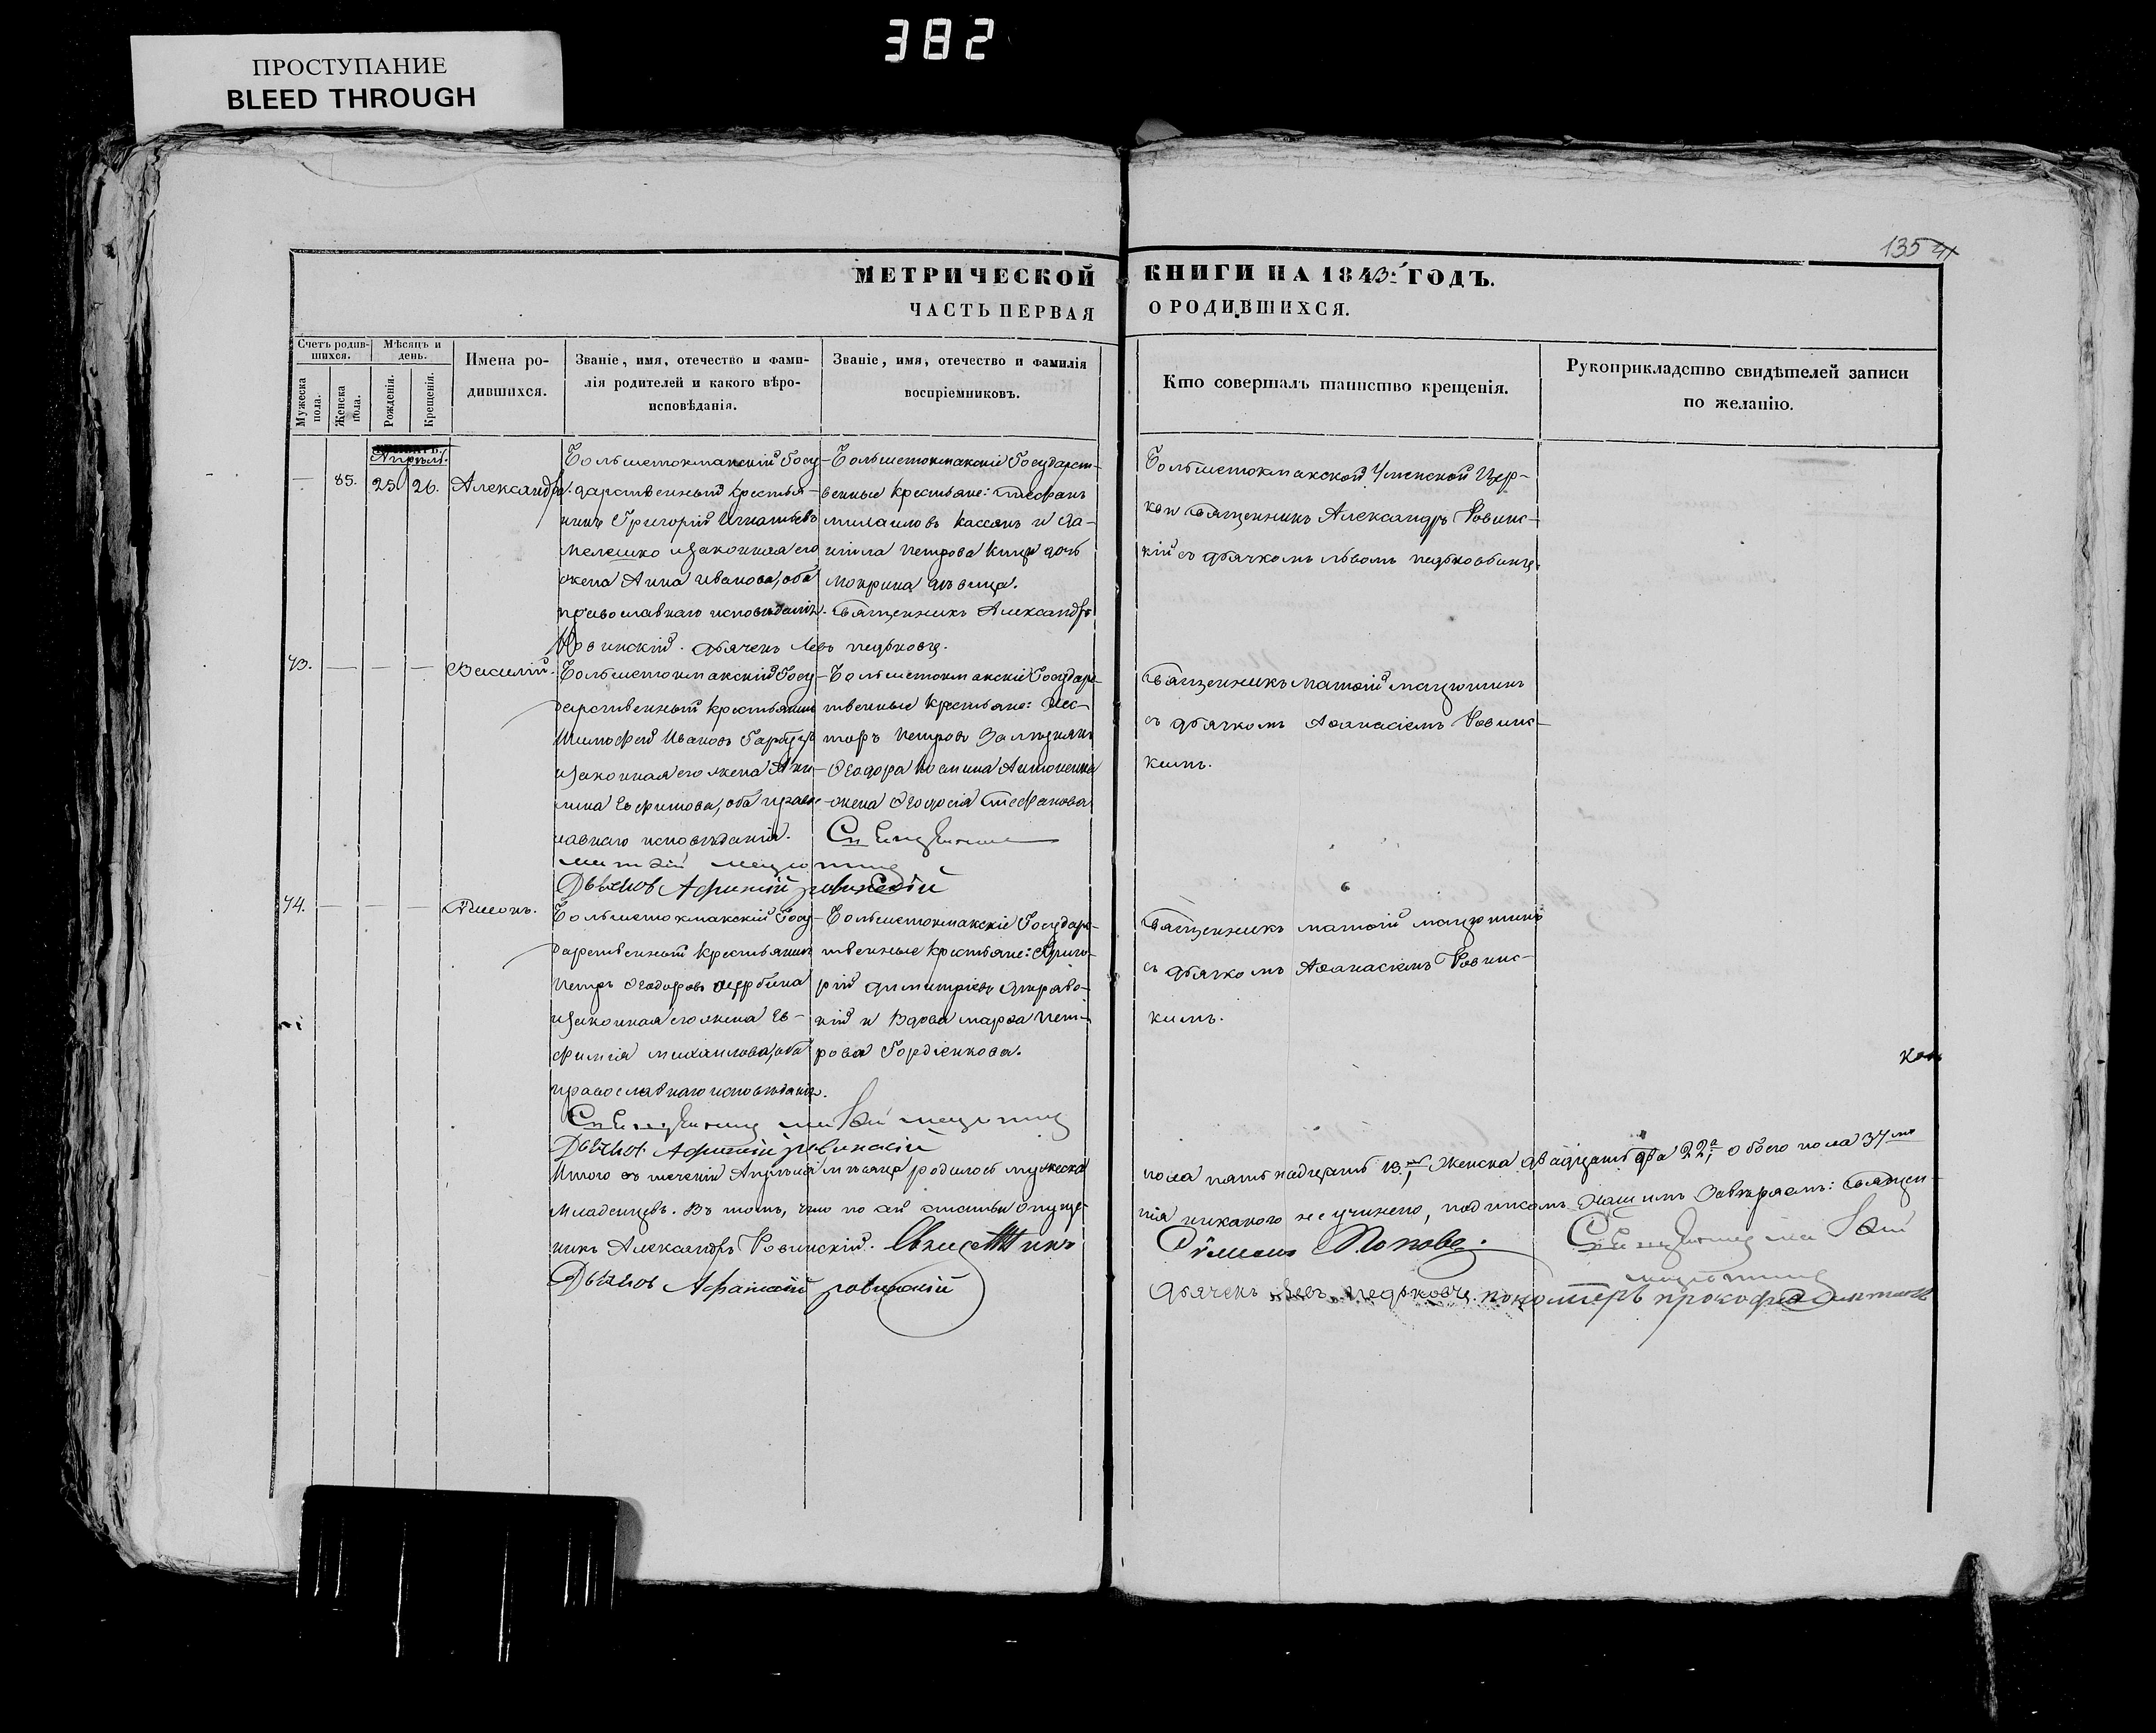 382
ПРОСТУПАНИЕ
BLEED THROUGH
135
МЕТРИЧЕСКОЙ КНИГИ НА 1843: ГОДЪ.
ЧАСТЬ ПЕРВАЯ О РОДИВШИХСЯ.
Счетъ родив-
шихся.
Мѣсяцъ и
день.
Мужеска
пола.
Женска
пола.
Рожденія.
Крещенія.
Имена ро-
дившихся.
Званіе, имя, отечество и фами-
лія родителей и какого вѣро-
исповѣданія.
Званіе, имя, отечество и фамилія
воспріемниковъ.
Кто совершалъ таинство крещенія.
Рукоприкладство свидѣтелей записи
по желанію.
Апрѣль.
— 85. 25 26. Александра.
Большетокмакскій Госу-
дарственный крестья-
нинъ Григорій Игнатьевъ
Мелешко и законная его
жена Анна Иванова, оба
православнаго исповѣданія.
Большетокмакскіе Государст-
венные крестьяне: Стефанъ
Михаиловъ Кассянъ и Да-
ніила Петрова дочь
Мокрина дѣвица.
Священникъ Александръ
Ровинскій. Дьячекъ Левъ
Большетокмакской Успенской Цер-
кви Священникъ Александръ Ровинс-
кій съ дьячкомъ Львомъ
73. — — — Василій.
Большетокмакскій Госу-
дарственный крестьянинъ
Тимофей Ивановъ
и законная его жена Аки-
лина Евфимова, оба правос-
лавнаго исповѣданія.
Большетокмакскіе Государс-
твенные крестьяне: Нес-
торъ Петровъ
Ѳеодора Космина Антоненка
жена Ѳеодосія Стефанова
Дьячокъ Афанасій Ровинскій
Священникъ Матѳій Мацютинъ
съ дьячкомъ Аѳанасіемъ Ровинс-
кимъ.
74. — — — Симеонъ.
Большетокмакскій Госу-
дарственный крестьянинъ
Петръ Ѳеодоровъ Щербина
и законная его жена Ев-
фимія Михаилова, оба
православнаго исповѣданія.
Большетокмакскіе Государс-
твенные крестьяне: Григо-
рій Димитріевъ
и вдова Марѳа Пет-
рова Гордіенкова.
Дьячокъ Афанасій Ровинскій
Священникъ Матѳій Мацютинъ
съ дьячкомъ Аѳанасіемъ Ровинс-
кимъ.
Итого въ теченіи Апрѣля мѣсяца родилось мужеска
пола пятьнадцать 15, женска двадцать два 22, обоего пола 37
младенцевъ. Въ томъ, что по сей статьи опуще-
нія никакого не учинено, подписомъ нашимъ завѣряемъ: Священ-
никъ Александръ Ровинскій. Священникъ
Симеонъ Поповъ.
Дьячокъ Афанасій Ровинскій
Дьячекъ Левъ пономарь Прокофій